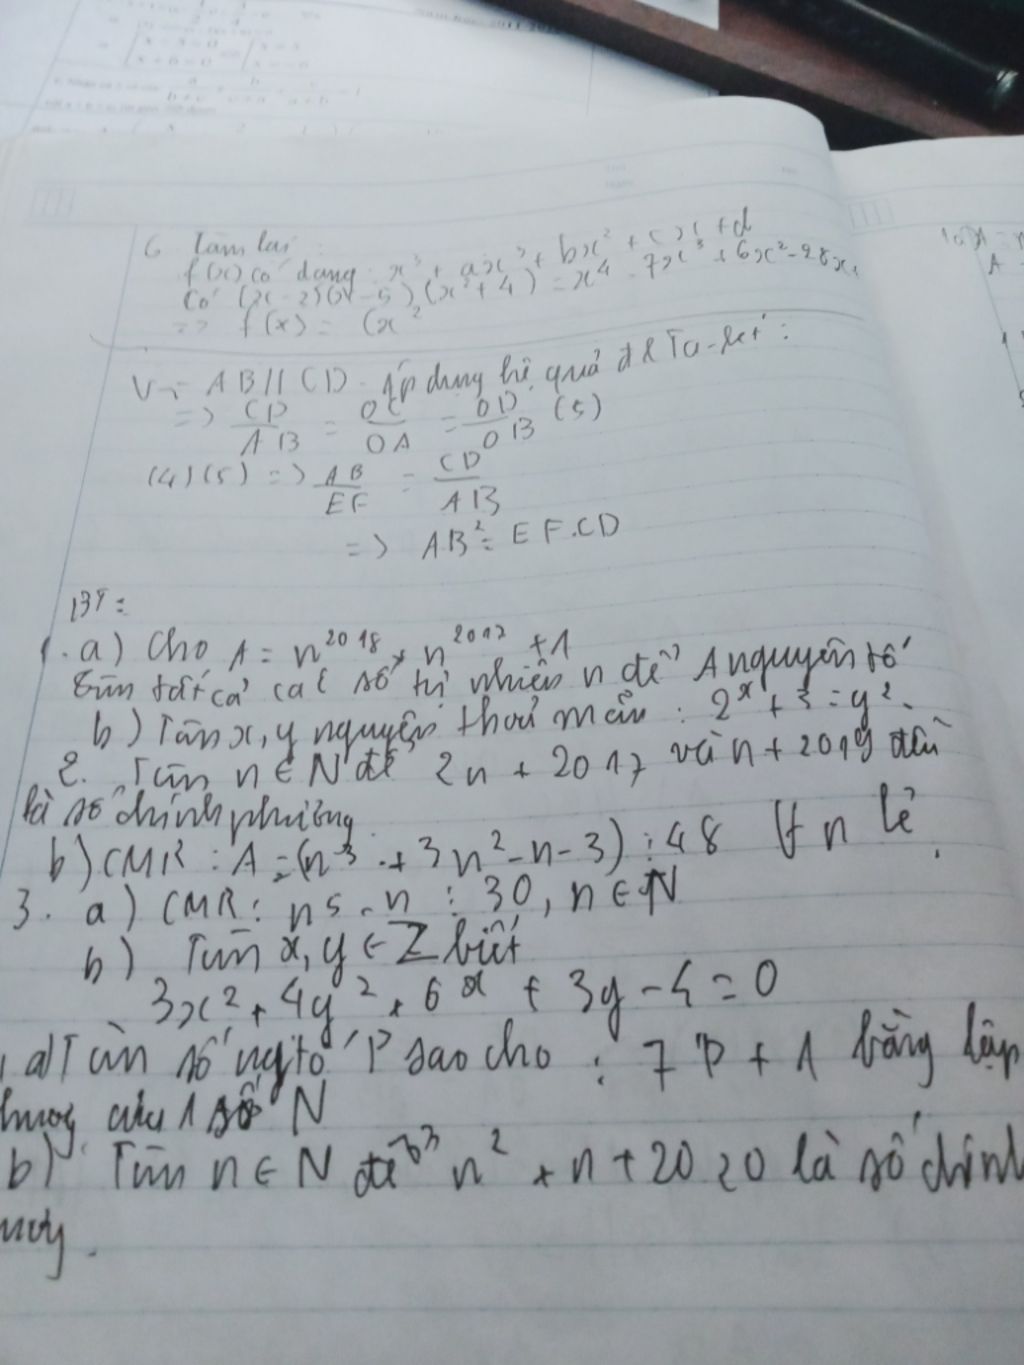 6 Làm lại :
f(x) có dạng : x³ + ax³ + bx² + cx + d
Có (x-2)(x-5).(x²+4) = x⁴ - 7x³ + 6x² - 28x +
=> f(x) = (x²
Vì AB // CD. Áp dụng hệ quả đl Ta-let :
=> CD/AB = OC/OA = OD/OB (5)
(4)(5) => AB/EF = CD/AB
=> AB² = EF.CD
1. a) Cho A = n²⁰¹⁸ + n²⁰¹⁷ + 1
tìm tất cả các số tự nhiên n để A nguyên tố
b) Tìm x, y nguyên thoả mãn : 2ˣ + 3 = y².
2. Tìm n ∈ N để 2n + 2017 và n + 2019 đều
là số chính phương
b) CMR : A = (n³ + 3n² - n - 3) ⋮ 48 ∀ n lẻ.
3. a) CMR : n5 - n ⋮ 30, n ∈ N
b) Tìm x, y ∈ Z biết
3x² + 4y² + 6x + 3y - 4 = 0
a) Tìm số ngtố P sao cho : 7P + 1 bằng lập
của 1 số N
b) Tìm n ∈ N để n² + n + 2020 là số chính